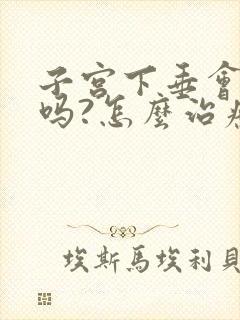 子宮下垂會
吗?怎麼治療
埃斯馬埃利貝